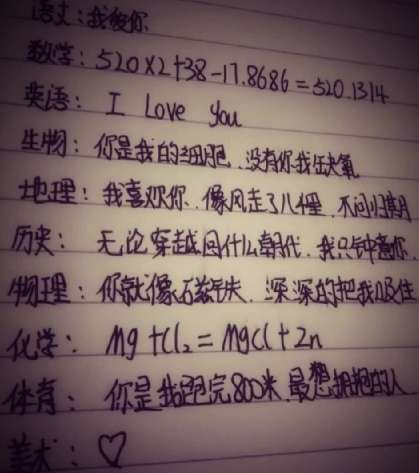 语文：我爱你
数学：520×2+38-17.8686=520.1314
英语：I Love you
生物：你是我的细胞，没有你我缺氧
地理：我喜欢你，像风走了八千里，不问归期
历史：无论穿越回什么朝代，我只钟意你
物理：你就像石兹铁，深深的把我吸住
化学：Mg+Cl₂=MgCl+Zn
体育：你是我跑完800米最想拥抱的人
美术：♡